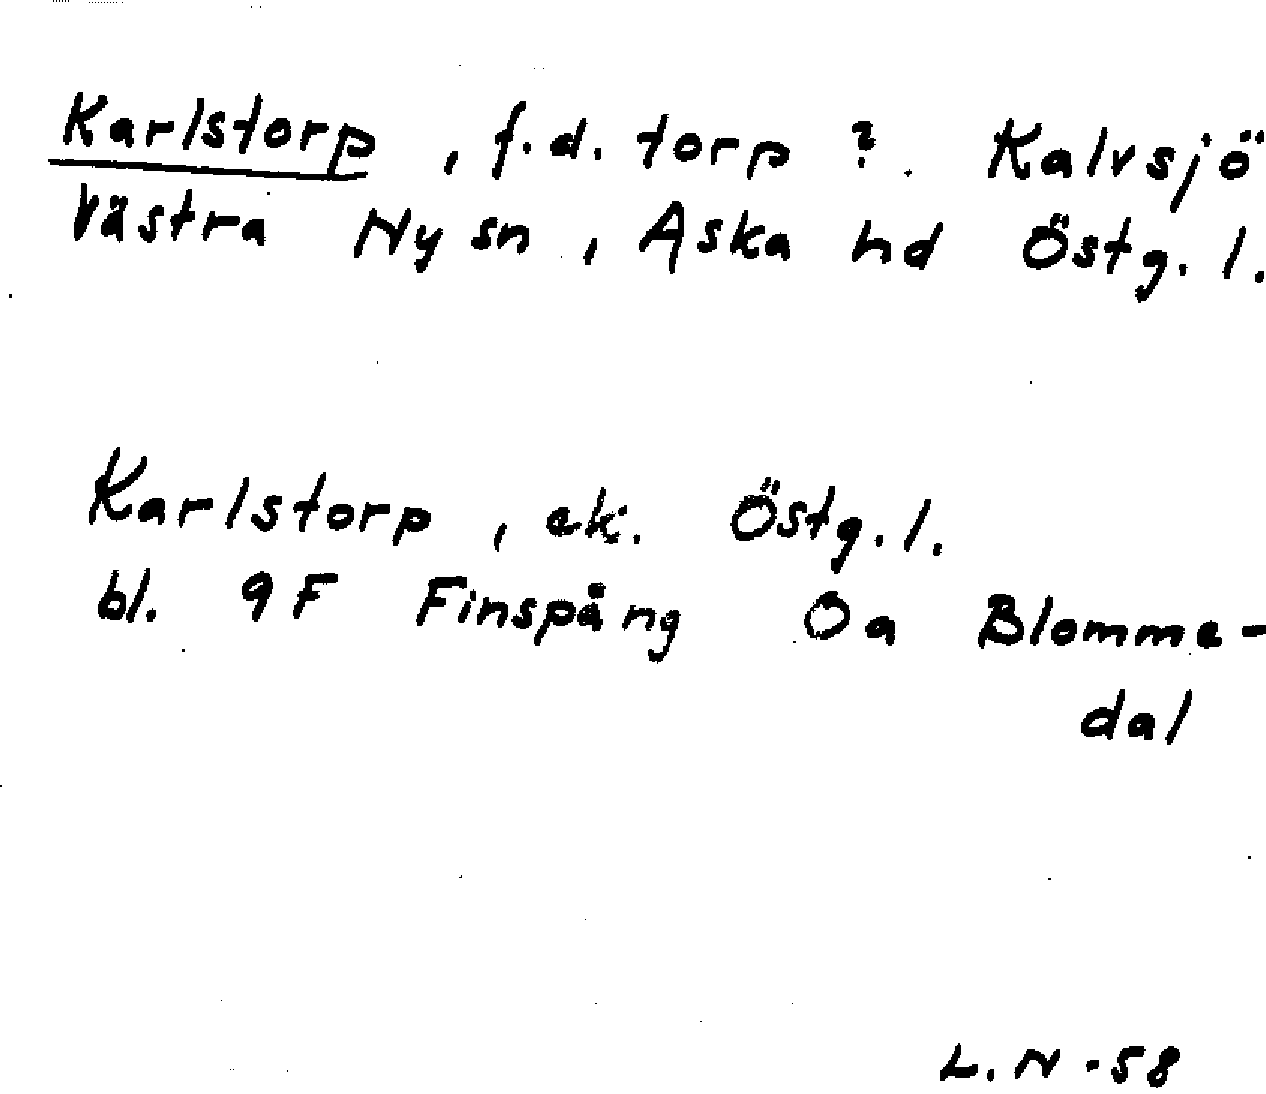 Karlstorp, f.d. torp? Kalvsjö
Västra Ny sn, Aska hd Östg. l.
Karlstorp, ek. Östg. l.
bl. 9F Finspång Oa Blomme-
dal
L. N -58